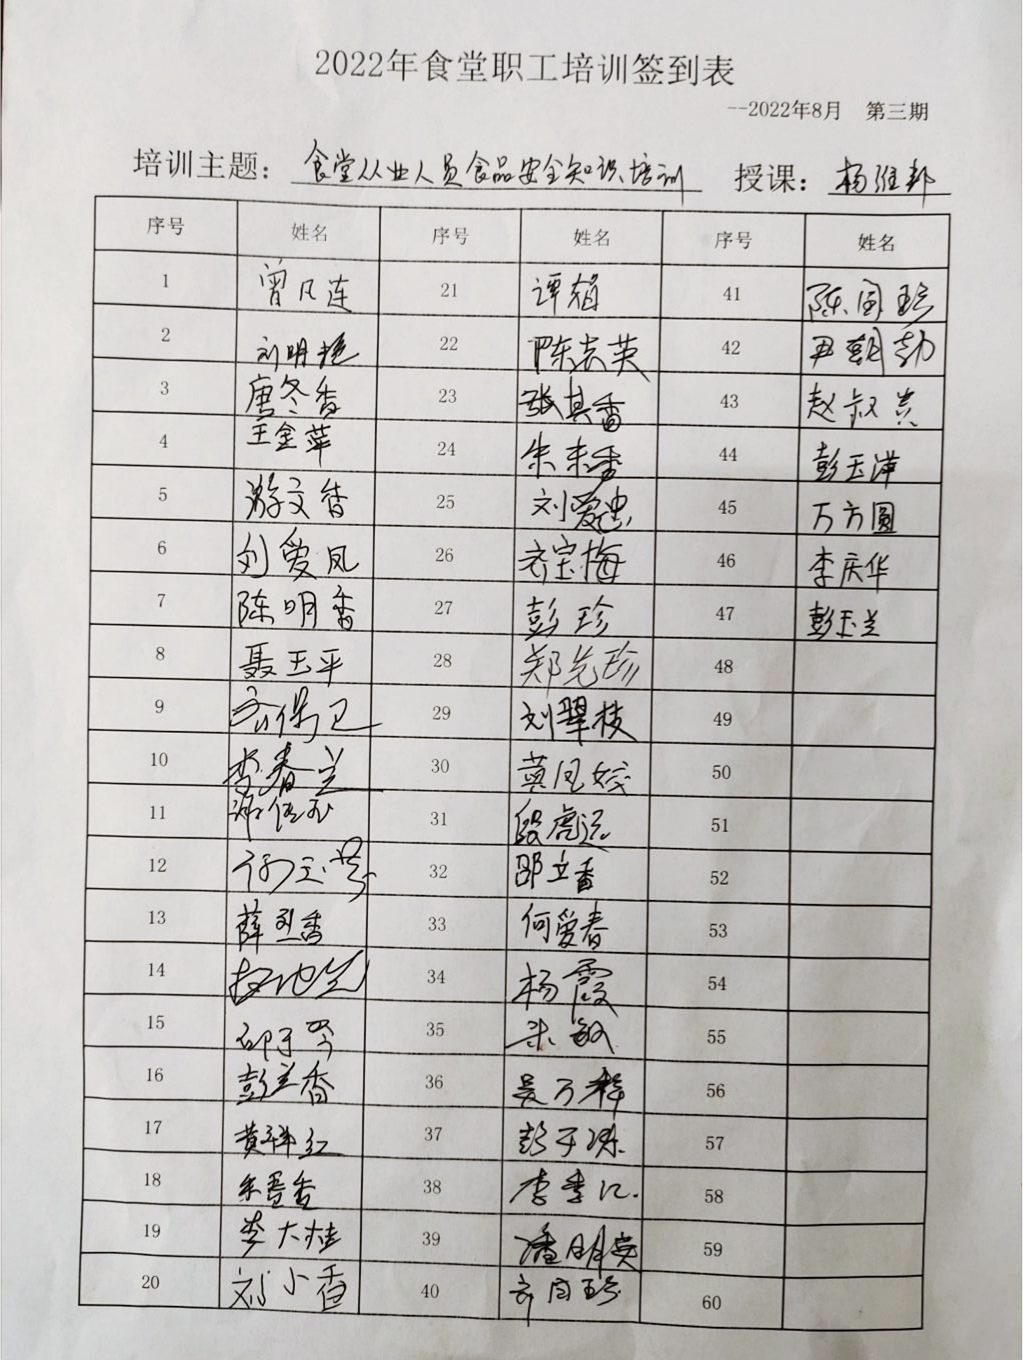 2022年食堂职工培训签到表
--2022年8月 第三期
培训主题: 食堂从业人员食品安全知识培训 授课: 杨维邦
序号 姓名 序号 姓名 序号 姓名
1 曾凡连 21 谭娟 41 陈国珍
2 刘明艳 22 陈志英 42 尹朝勃
3 唐冬香 23 张其香 43 赵叔贵
4 王金萍 24 朱来香 44 彭玉萍
5 游文香 25 刘爱忠
45 万方圆
6 刘爱凤 26 宝梅 46 李庆华
7 陈明香 27 彭珍 47 彭玉兰
8 聂玉平 28 郑先珍 48
9 29 刘翠枝 49
10 李春兰 30 黄凤姣 50
11 31 段虎运 51
12 32 邵立香 52
13 薛烈香 33 何爱春 53
14 34 杨霞 54
15 35 朱敏 55
16 彭兰香 36 吴万辉 56
17 黄祥红 37 彭于珠 57
18 38 李季仁 58
19 李大桂 39 潘明英 59
20 刘小香 40 60